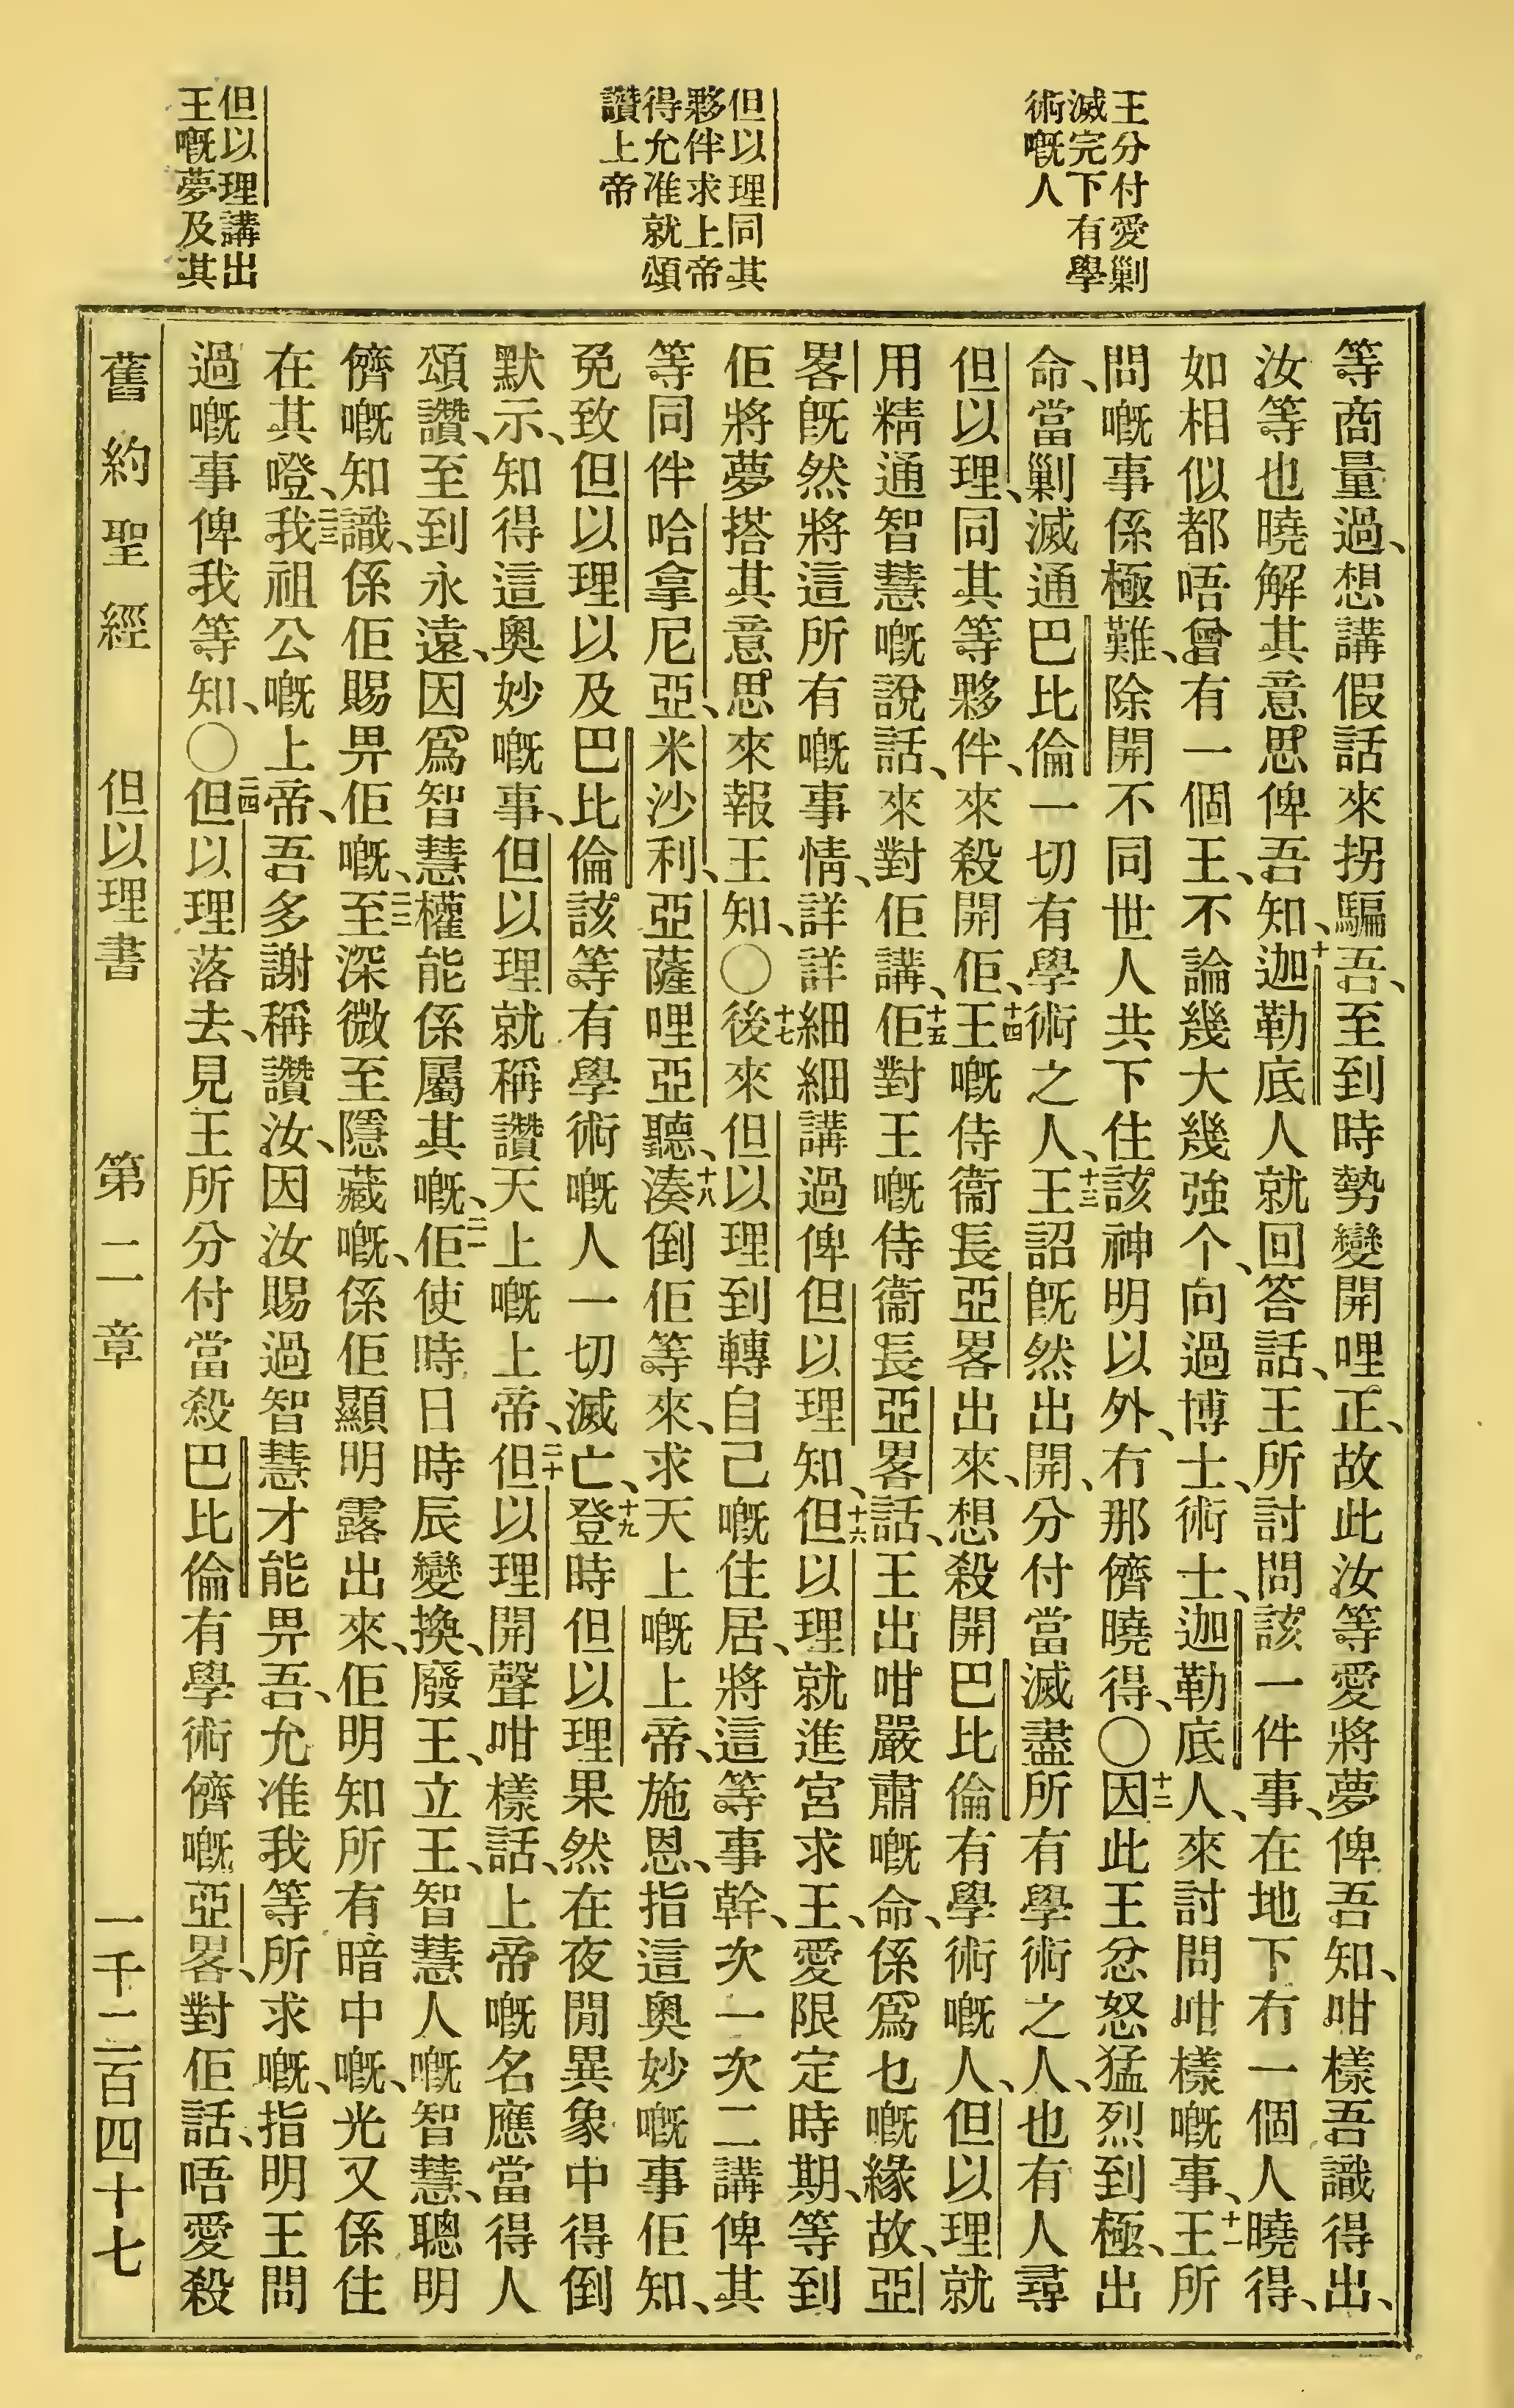 王分付愛剿
滅完下有學
術嘅人
但以理同其
夥伴求上帝
得允准就頌
讚上帝
但以理講出
王嘅夢及其
等商量過、想講假話來拐騙吾、至到時勢變開哩正、故此汝等愛將夢俾吾知、咁樣吾識得出、
汝等也曉解其意思俾吾知、十迦勒底人就回答話、王所討問該一件事、在地下冇一個人曉得、
如相似都唔曾有一個王、不論幾大幾強个、向過博士、術士、迦勒底人、來討問咁樣嘅事、十一王所
問嘅事係極難、除開不同世人共下住該神明以外、冇那儕曉得、〇十二因此王忿怒猛烈到極、出
命、當剿滅通巴比倫一切有學術之人、十三王詔既然出開、分付當滅盡所有學術之人、也有人尋
但以理、同其等夥伴、來殺開佢、十四王嘅侍衞長亞畧出來、想殺開巴比倫有學術嘅人、但以理就
用精通智慧嘅說話、來對佢講、十五佢對王嘅侍衞長亞畧話、王出咁嚴肅嘅命、係爲乜嘅緣故、亞
畧既然將這所有嘅事情、詳詳細細講過俾但以理知、十六但以理就進宮求王、愛限定時期、等到
佢將夢搭其意思來報王知、〇十七後來但以理到轉自己嘅住居、將這等事幹、次一次二講俾其
等同伴哈拿尼亞、米沙利、亞薩哩亞聽、十八湊倒佢等來、求天上嘅上帝、施恩、指這奧妙嘅事佢知、
免致但以理以及巴比倫該等有學術嘅人一切滅亡、十九登時但以理果然在夜間異象中得倒
默示、知得這奧妙嘅事、但以理就稱讚天上嘅上帝、二十但以理開聲咁樣話、上帝嘅名應當得人
頌讚、至到永遠、因爲智慧權能係屬其嘅、二一佢使時日時辰變換、廢王、立王、智慧人嘅智慧、聰明
儕嘅知識、係佢賜畀佢嘅、二二至深微至隱藏嘅、係佢顯明露出來、佢明知所有暗中嘅、光又係住
在其噔、二三我祖公嘅上帝、吾多謝稱讚汝、因汝賜過智慧才能畀吾、允准我等所求嘅、指明王問
過嘅事俾我等知、〇二四但以理落去、見王所分付當殺巴比倫有學術儕嘅亞畧、對佢話、唔愛殺
舊約聖經 但以理書 第二章 一千二百四十七